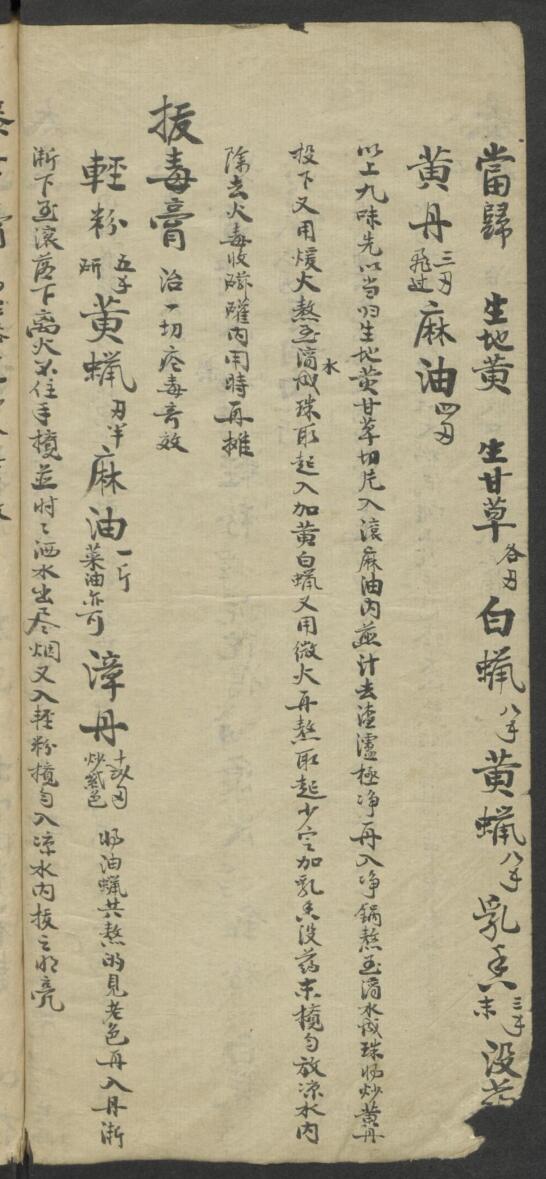 當歸 生地黄 生甘草各刄 白蜡八手 黄蜡八手 乳香三手末 没
黄丹三刄飛过 麻油四刄
以上九味先以当归生地黄甘草切片入滚麻油内煎汁去渣濾極净再入净鍋熬至滴水成珠將炒黄丹
投下又用煖火熬至滴水成珠取起入加黄白蜡又用微火再熬取起少定加乳香没药末攪匀放凉水内
除去火毒收磁罐内用時再摊
拔毒膏 治一切疮毒奇效
輕粉五手研 黄蜡刄半 麻油一斤菜油亦可 漳丹炒紫色 將油蜡共熬的見老色再入丹渐
渐下至滚落下离火不住手攪並时々洒水出尽烟又入輕粉攪匀入凉水内拔之明亮